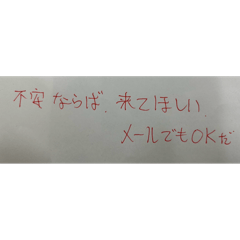 不安ならば、来てほしい
メールでもOKだ